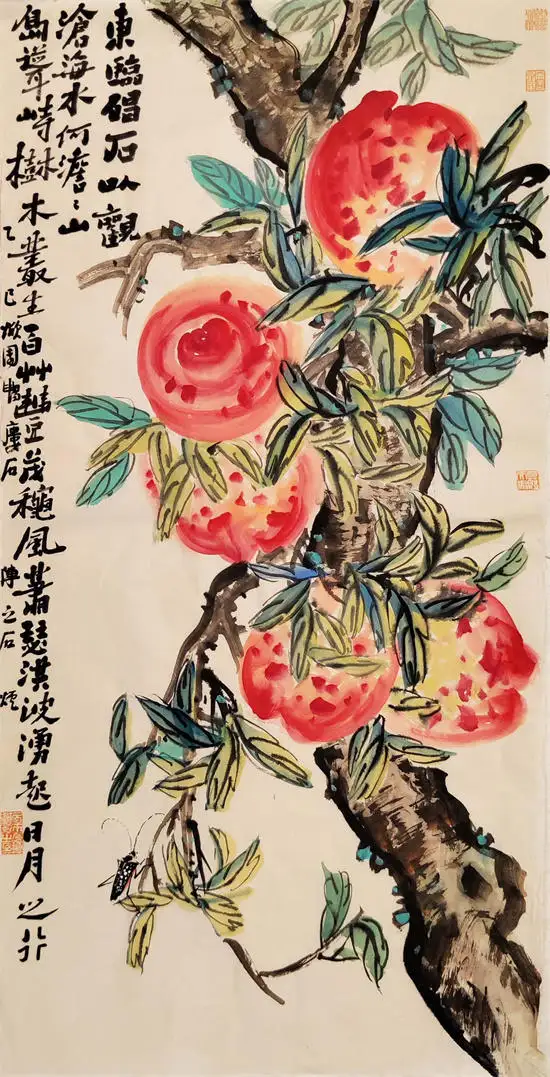 東臨碣石以觀
滄海水何澹〻山
島聳峙樹木叢生百艸豐茂穐風蕭瑟洪波湧起日月之行
乙巳 園 石 之石